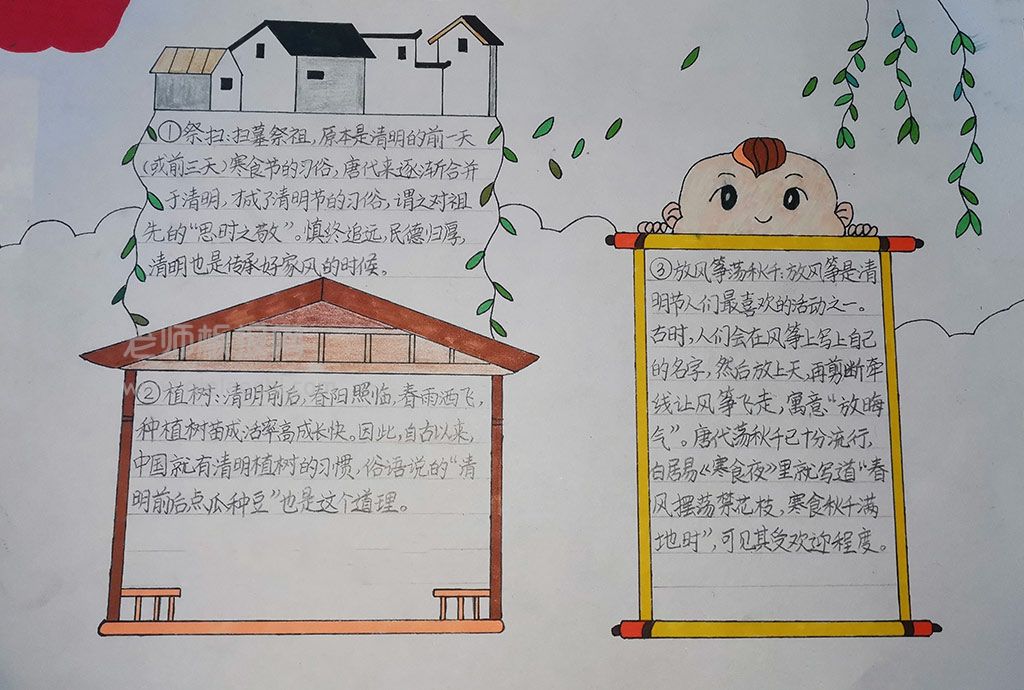 ①祭扫:扫墓祭祖,原本是清明的前一天
(或前三天)寒食节的习俗,唐代来逐渐合并
于清明,才成了清明节的习俗,谓之对祖
先的“思时之敬”。慎终追远,民德归厚,
清明也是传承好家风的时候。
②植树:清明前后,春阳照临,春雨洒飞,
种植树苗成活率高成长快。因此,自古以来,
中国就有清明植树的习惯,俗语说的“清
明前后点瓜种豆”也是这个道理。
③放风筝荡秋千:放风筝是清
明节人们最喜欢的活动之一。
古时,人们会在风筝上写上自己
的名字,然后放上天,再剪断牵
线让风筝飞走,寓意“放晦
气”。唐代荡秋千已十分流行,
白居易《寒食夜》里就写道“春
风摆荡禁花枝,寒食秋千满
地时”,可见其受欢迎程度。